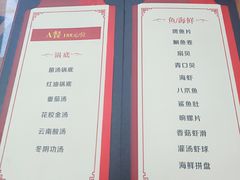 A餐 188元/位
锅底
菌汤锅底
红油锅底
番茄汤
花胶金汤
云南酸汤
冬阴功汤
鱼/海鲜
斑鱼片
鲷鱼卷
扇贝
青口贝
海虾
八爪鱼
鲨鱼肚
响螺片
香菇虾滑
灌汤虾球
海鲜拼盘